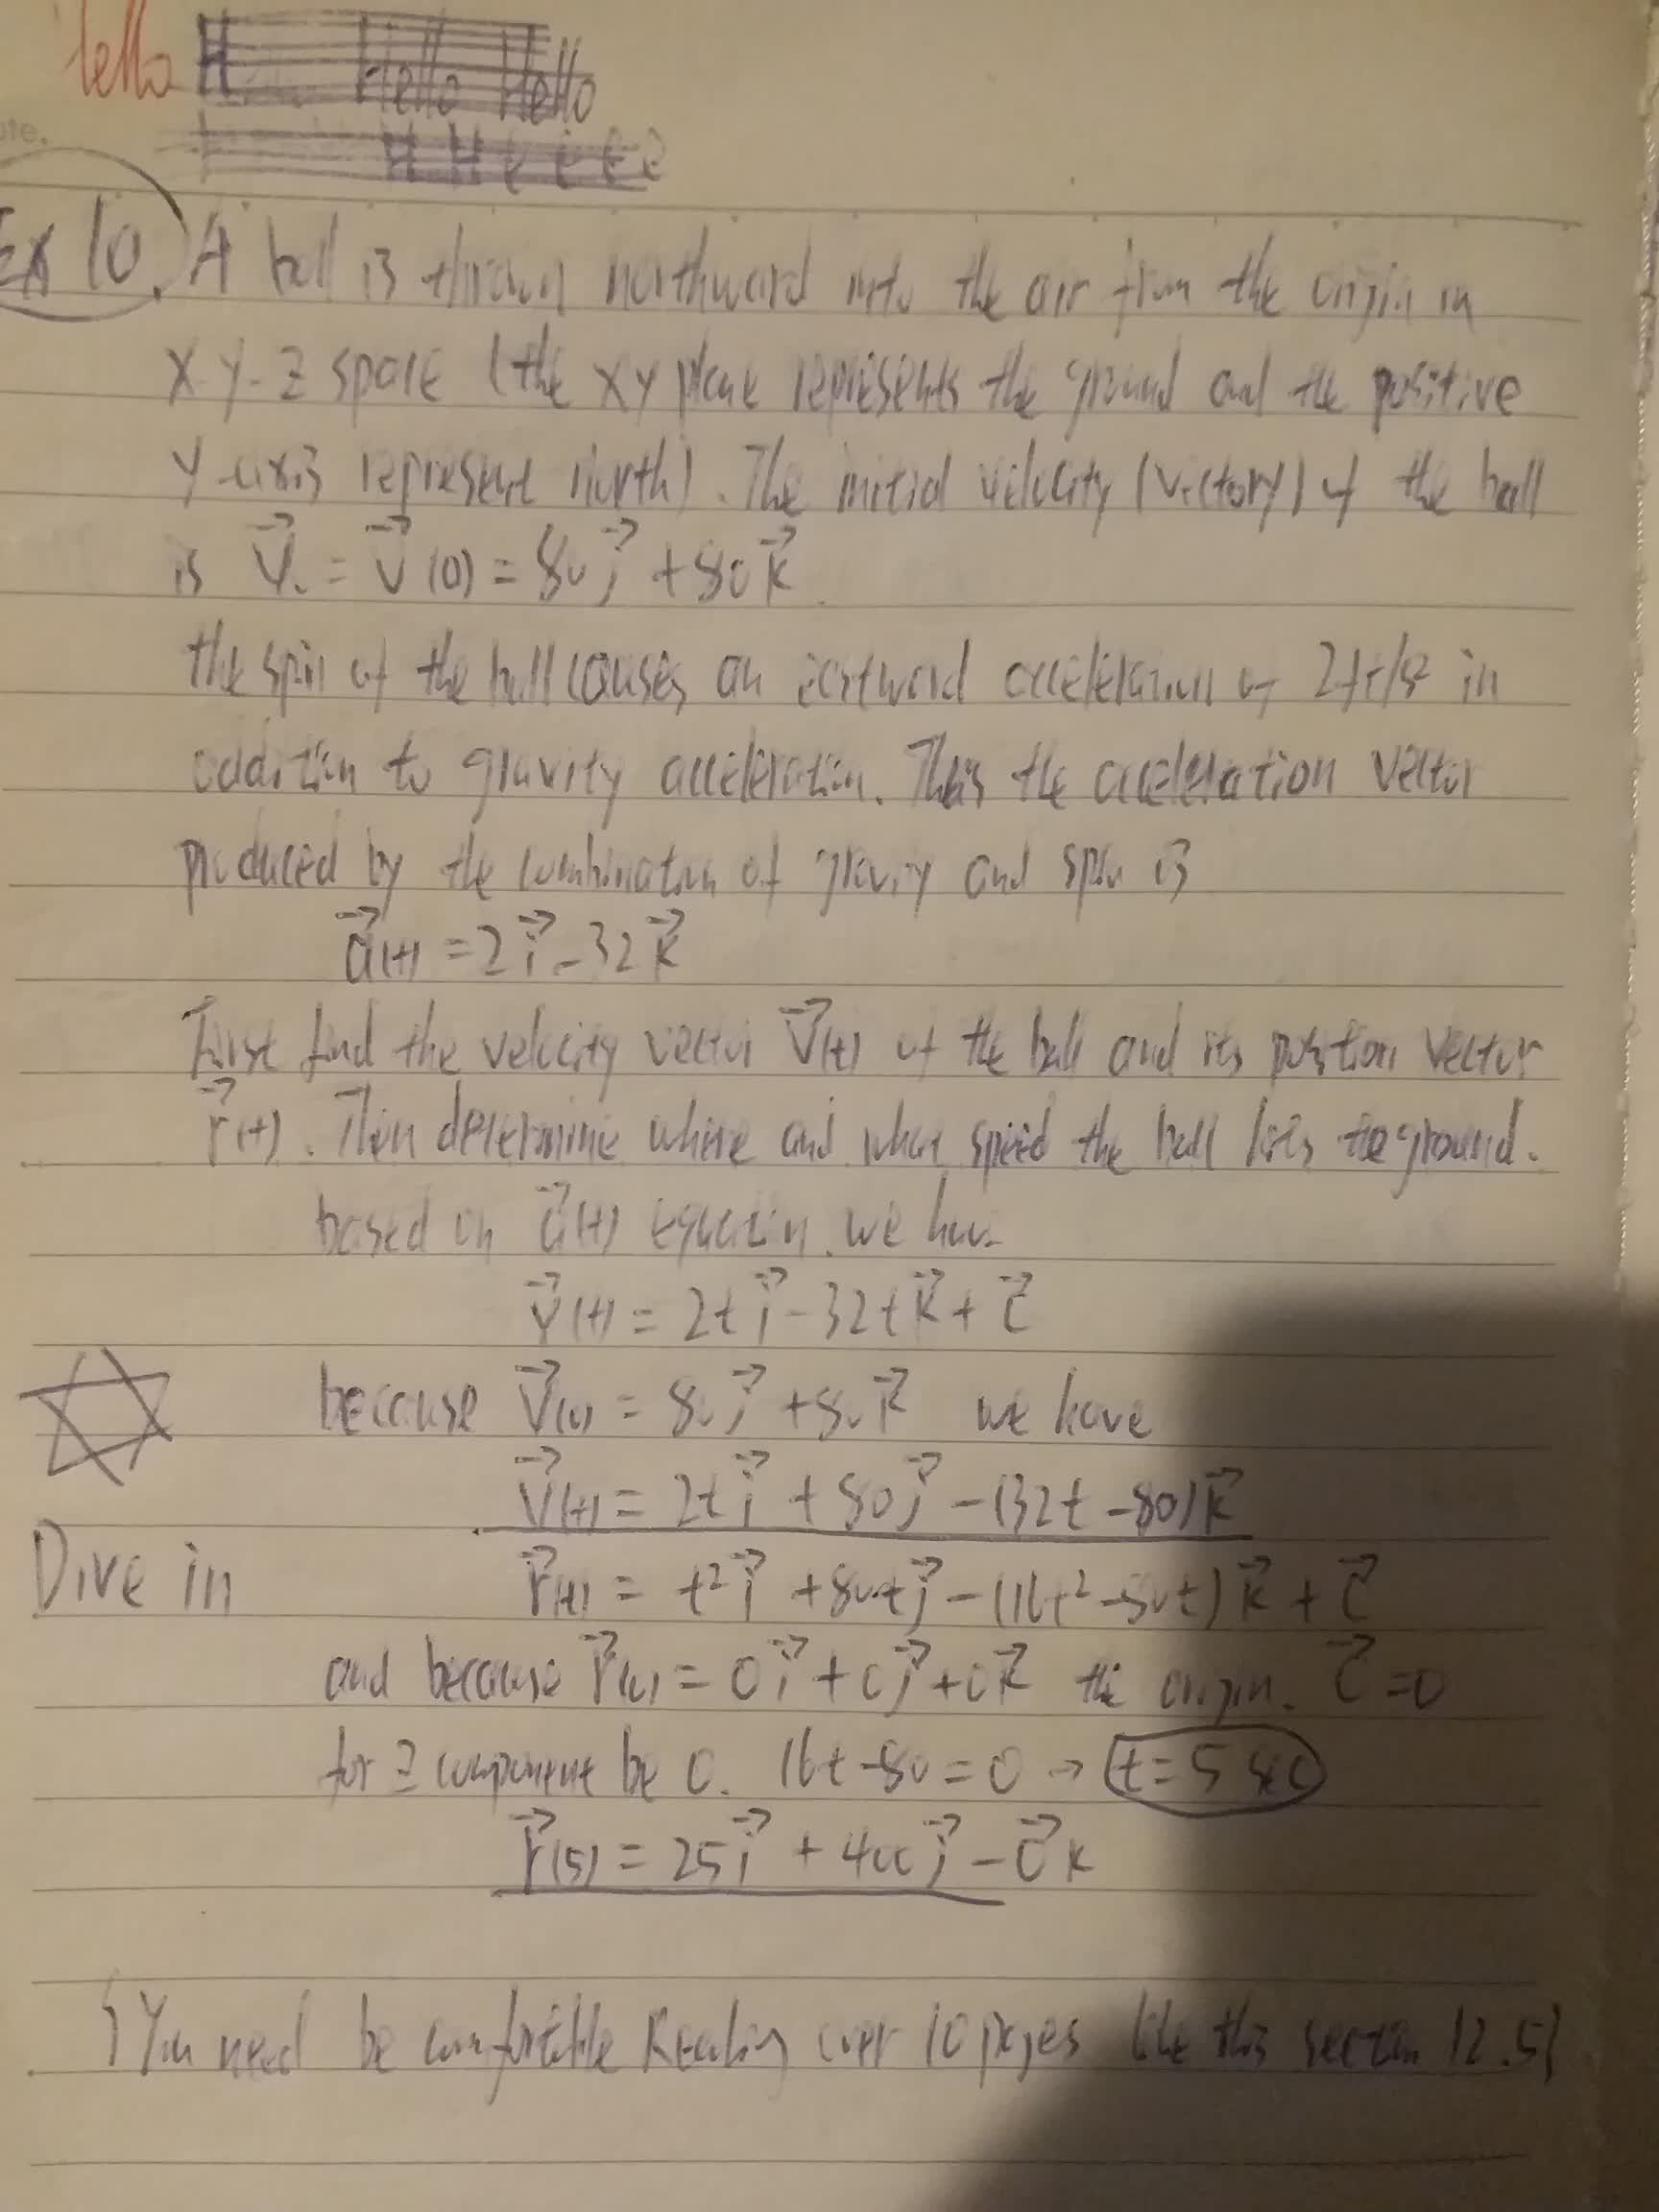 Hello H Hello Hello
H H e e e e
Ex 10. A ball is thrown northward into the air from the origin in
x-y-z space (the xy plane represents the ground and the positive
y-axis represent north). The initial velocity (vectory) of the ball
is V⃗₀ = V⃗(0) = 80j⃗ + 80k⃗.
the spin of the ball causes an eastward acceleration of 2ft/s² in
addition to gravity acceleration. This the acceleration vector
produced by the combination of gravity and spin is
a⃗(t) = 2i⃗ - 32k⃗
First find the velocity vector V⃗(t) of the ball and its position vector
r⃗(t). Then determine where and what speed the ball hits the ground.
based on a⃗(t) equation. we have
V⃗(t) = 2ti⃗ - 32tk⃗ + C⃗
because V⃗(0) = 80j⃗ + 80k⃗ we have
V⃗(t) = 2ti⃗ + 80j⃗ - (32t - 80)k⃗
Dive in r⃗(t) = t²i⃗ + 80tj⃗ - (16t² - 80t)k⃗ + C⃗
and because r⃗(0) = 0i⃗ + 0j⃗ + 0k⃗ the origin. C⃗ = 0
for z component be 0. 16t - 80 = 0 → t = 5 sec
r⃗(5) = 25i⃗ + 400j⃗ - 0⃗k
{You need be comfortible Reading over 10 pages like this section 12.5}